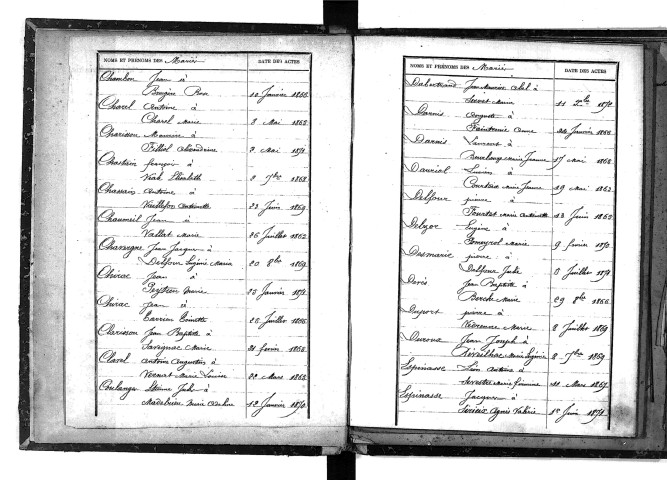 NOMS ET PRÉNOMS DES Mariés DATE DES ACTES
Chambon Jean à
Bougine Rose 10 Janvier 1866
Charel Antoine à
Charel Marie 8 Mai 1865
Charisson Maurice à
Filliol Alexandrine 3 Mai 1871
Chastain françois à
Viale Elisabeth 2 7bre 1868
Chassain Antoine à
Vieillefon Antoinette 22 Juin 1869
Chaumeil Jean à
Vallat Marie 26 Juillet 1862
Chauvegne Jean Jacques à
Delfour Eugénie Marie 20 8bre 1869
Chirac Jean à
Peyssou Marie 23 Janvier 1871
Chirac Jean à
Terrieu Toinette 26 Juillet 1866
Clarisson Jean Baptiste à
Savignac Marie 21 fevrier 1868
Clavel Antoine Augustin à
Vernat Marie Louise 22 Mars 1865
Coulanges Etienne Jules à
Madelrieu Marie 12 Janvier 1870
NOMS ET PRÉNOMS DES Mariés DATE DES ACTES
Dabertrand Jean Maurice Abel à
Marie 11 1871
Darnis Auguste à
Fonteneix Anne 24 Janvier 1866
Darnis Laurent à
Marie Jeanne 17 Mai 1868
Dauriol Lucien à
Courteix Marie Jeanne 19 Mai 1862
Delfour pierre à
Tourtet Marie Antoinette 13 Juin 1862
Delzor Eugène à
Pomeyrol Marie 9 fevrier 1870
Desmarie pierre à
Delfour Julie 8 Juillet 1871
Devès Jean Baptiste à
Berche Marie 29 8bre 1866
Duport pierre à
Marie 8 Juillet 1869
Duroux Jean Joseph à
Marie Eugénie 8 7bre 1869
Espinasse Léon Antoine à
Marie 11 Mars 1867
Espinasse Jacques à
Agnès Valérie 1er Juin 1871